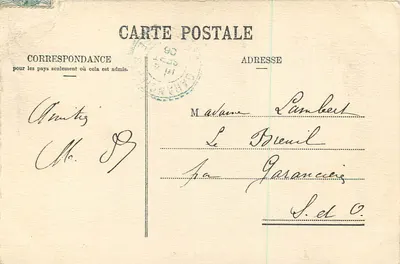 CARTE POSTALE
CORRESPONDANCE
pour les pays seulement où cela est admis.
ADRESSE
Amitiés
M.
Madame Lambert
Le Breuil
par Garancières
S. et O.
GARANC
06